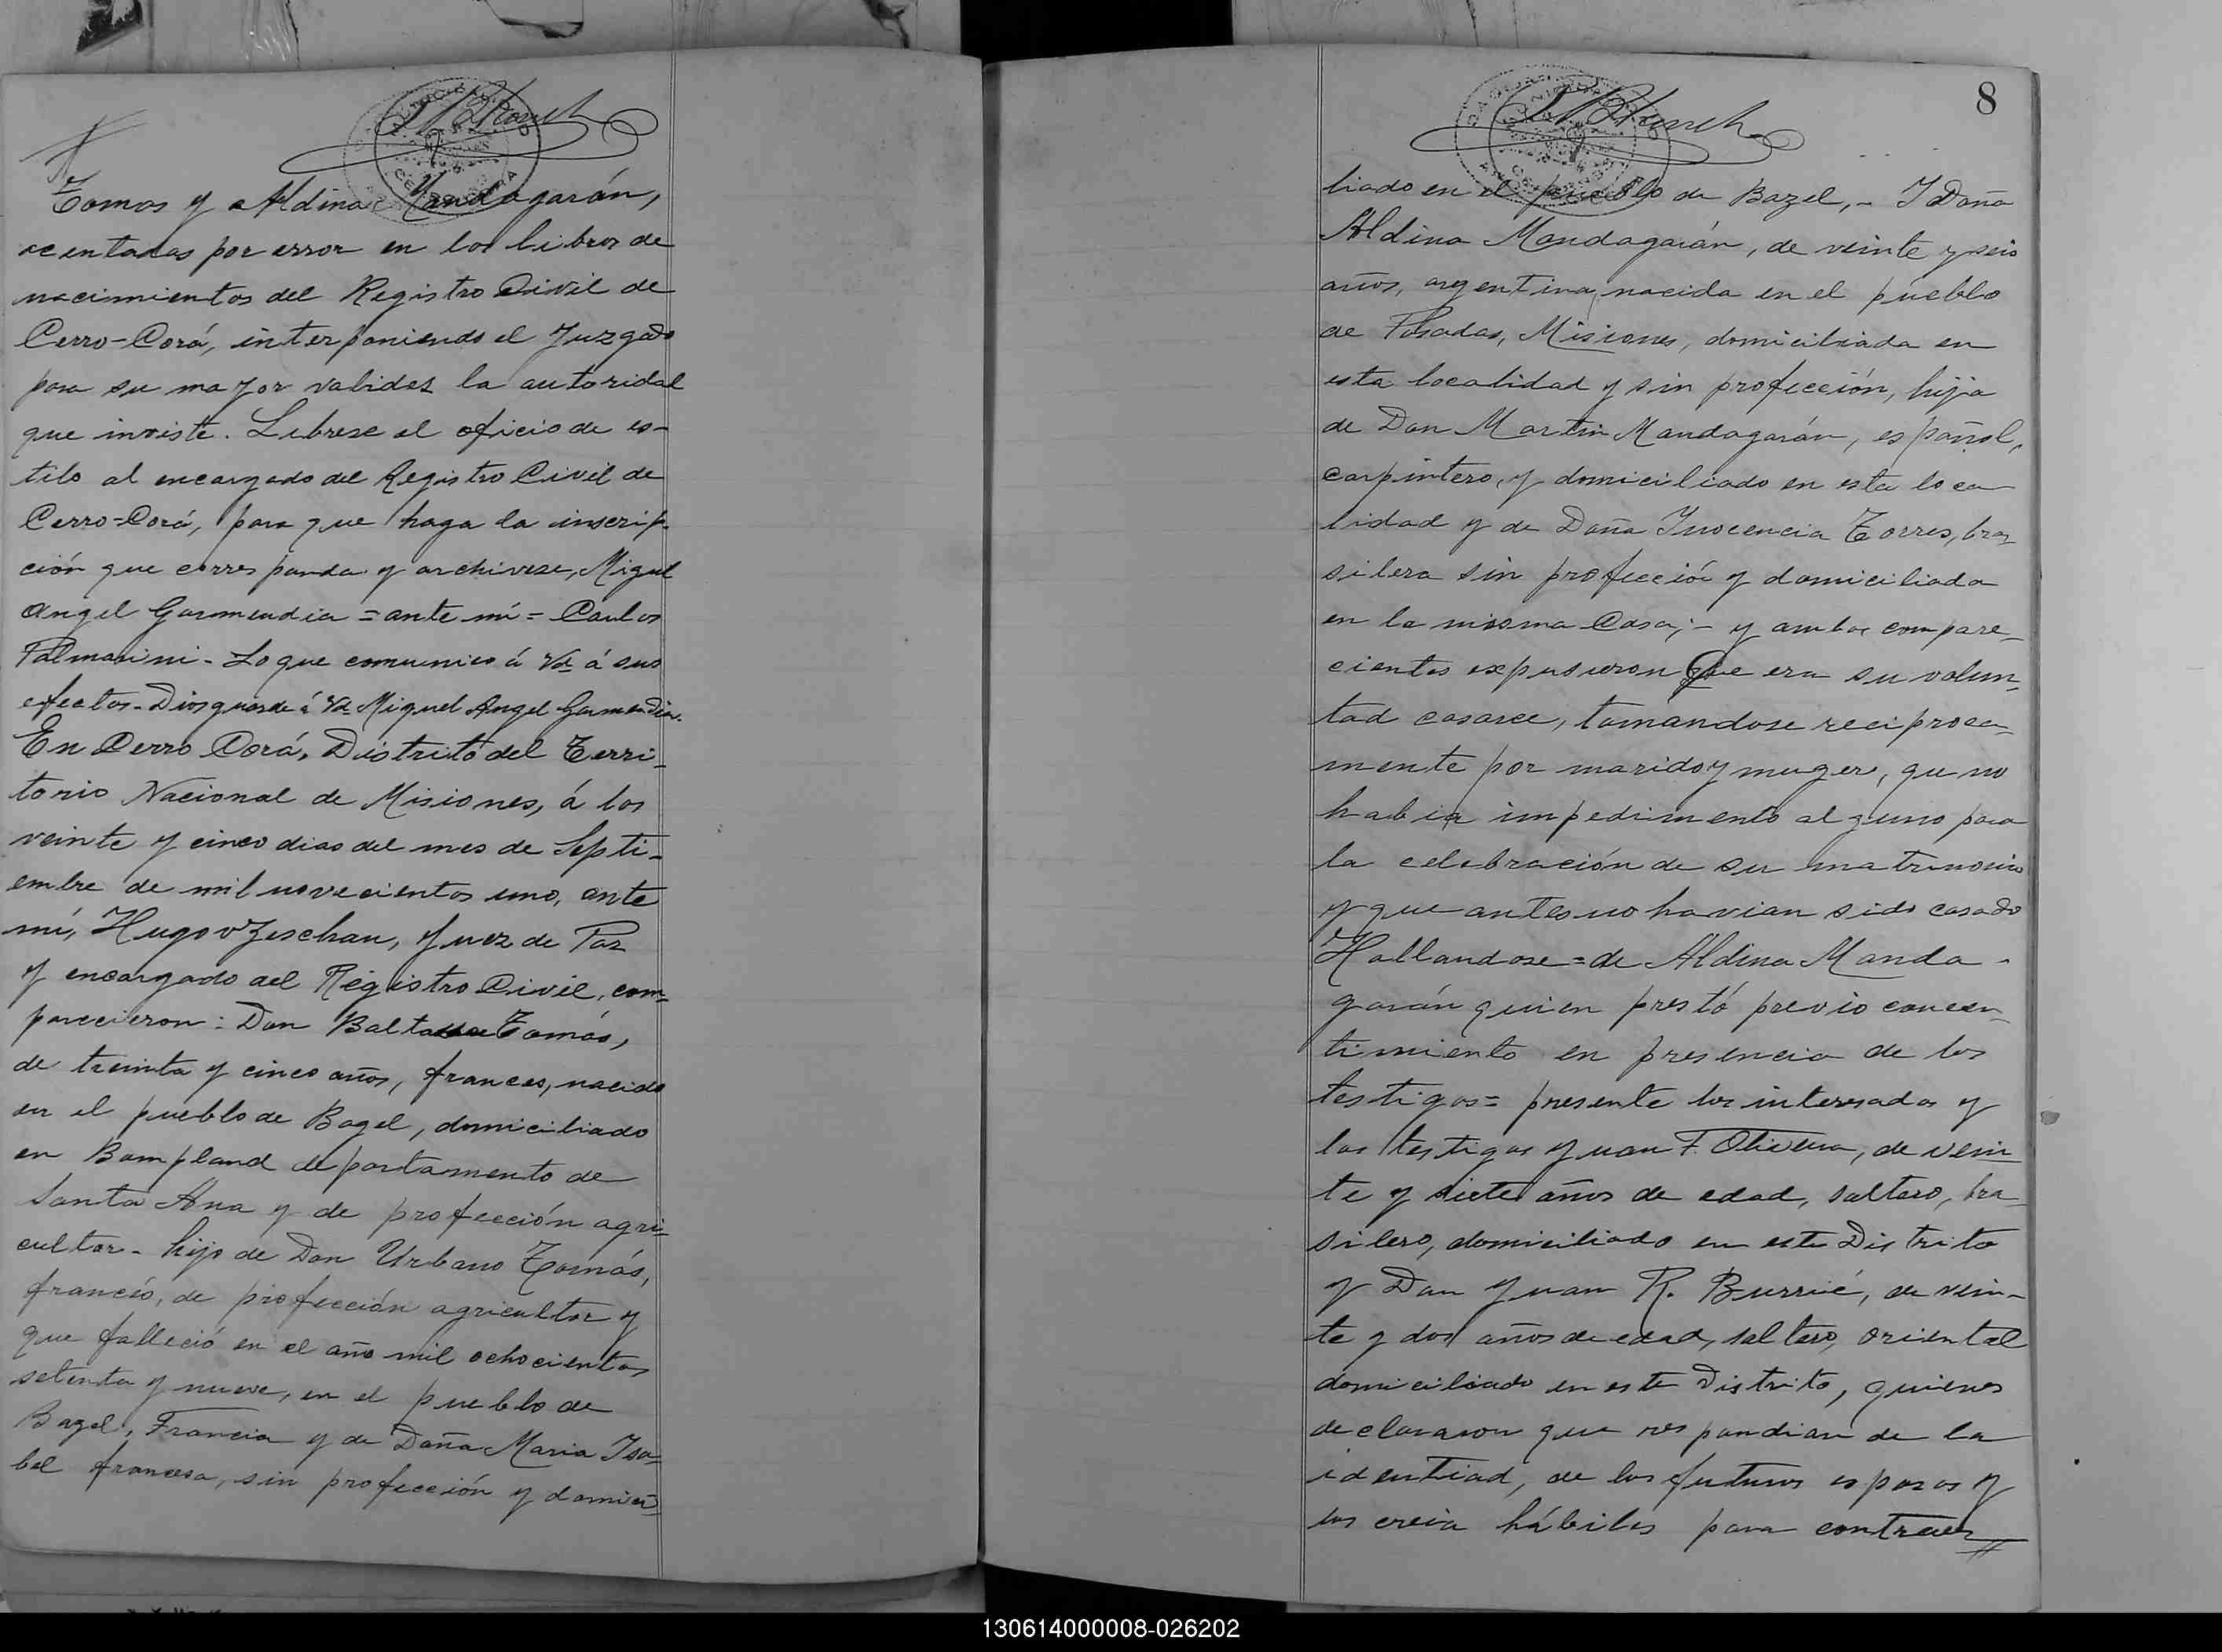 Tomas y Aldina Mandagarán,
acentadas por error en los libros de
nacimientos del Registro Civil de
Cerro-Corá, interponiendo el Juzgado
para su mayor validez la autoridad
que inviste. Librese el oficio de es-
tilo al encargado del Registro Civil de
Cerro-Corá, para que haga la inscrip-
ción que corresponda y archivese, Miguel
Angel Garmendia = ante mí = Carlos
Palmarini - Lo que comunico á Vd á sus
efectos - Dios guarde á Vd Miguel Angel Garmendia.
En Cerro Corá, Distrito del Terri-
torio Nacional de Misiones, á los
veinte y cinco dias del mes de Septi-
embre de mil novecientos uno, ante
mí, Hugo v Zeschau, Juez de Paz
y encargado del Registro Civil, com-
parecieron: Don Baltasar Tomás,
de treinta y cinco años, frances, nacido
en el pueblo de Bagel, domiciliado
en Bompland departamento de
Santa Ana y de profección agri-
cultor - hijo de Don Urbano Tomás,
francés, de profección agricultor y
que falleció en el año mil ochocientos
setenta y nueve, en el pueblo de
Bazel, Francia y de Doña Maria Isa-
bel francesa, sin profección y domici-
8
liado en el pueblo de Bazel, - I Doña
Aldina Mandagarán, de veinte y seis
años, argentina, nacida en el pueblo
de Posadas, Misiones, domiciliada en
esta localidad y sin profección, hija
de Don Martin Mandagarán, español,
carpintero, y domiciliado en esta loca
lidad y de Doña Inocencia Torres, bra-
silera sin profección y domiciliada
en la misma Casa; - y ambos compare-
cientes expusieron Que era su volun-
tad casarce, tomandose reciproca-
mente por marido y muger, que no
habia impedimento alguno para
la celebración de su matrimonio
y que antes no havian sido casado
Hallandose = de Aldina Manda-
garán quien prestó previo concen-
timiento en presencia de los
testigos = presente los interesados y
los testigos Juan F. Oliveira, de vein-
te y siete años de edad, soltero, bra-
silero, domiciliado en este Distrito
y Don Juan R. Burrié, de vein-
te y dos años de edad, soltero, oriental
domiciliado en este Distrito, quienes
declararon que respondian de la
identiad, de los futuros esposos y
los creia hábiles para contraer
130614000008-026202